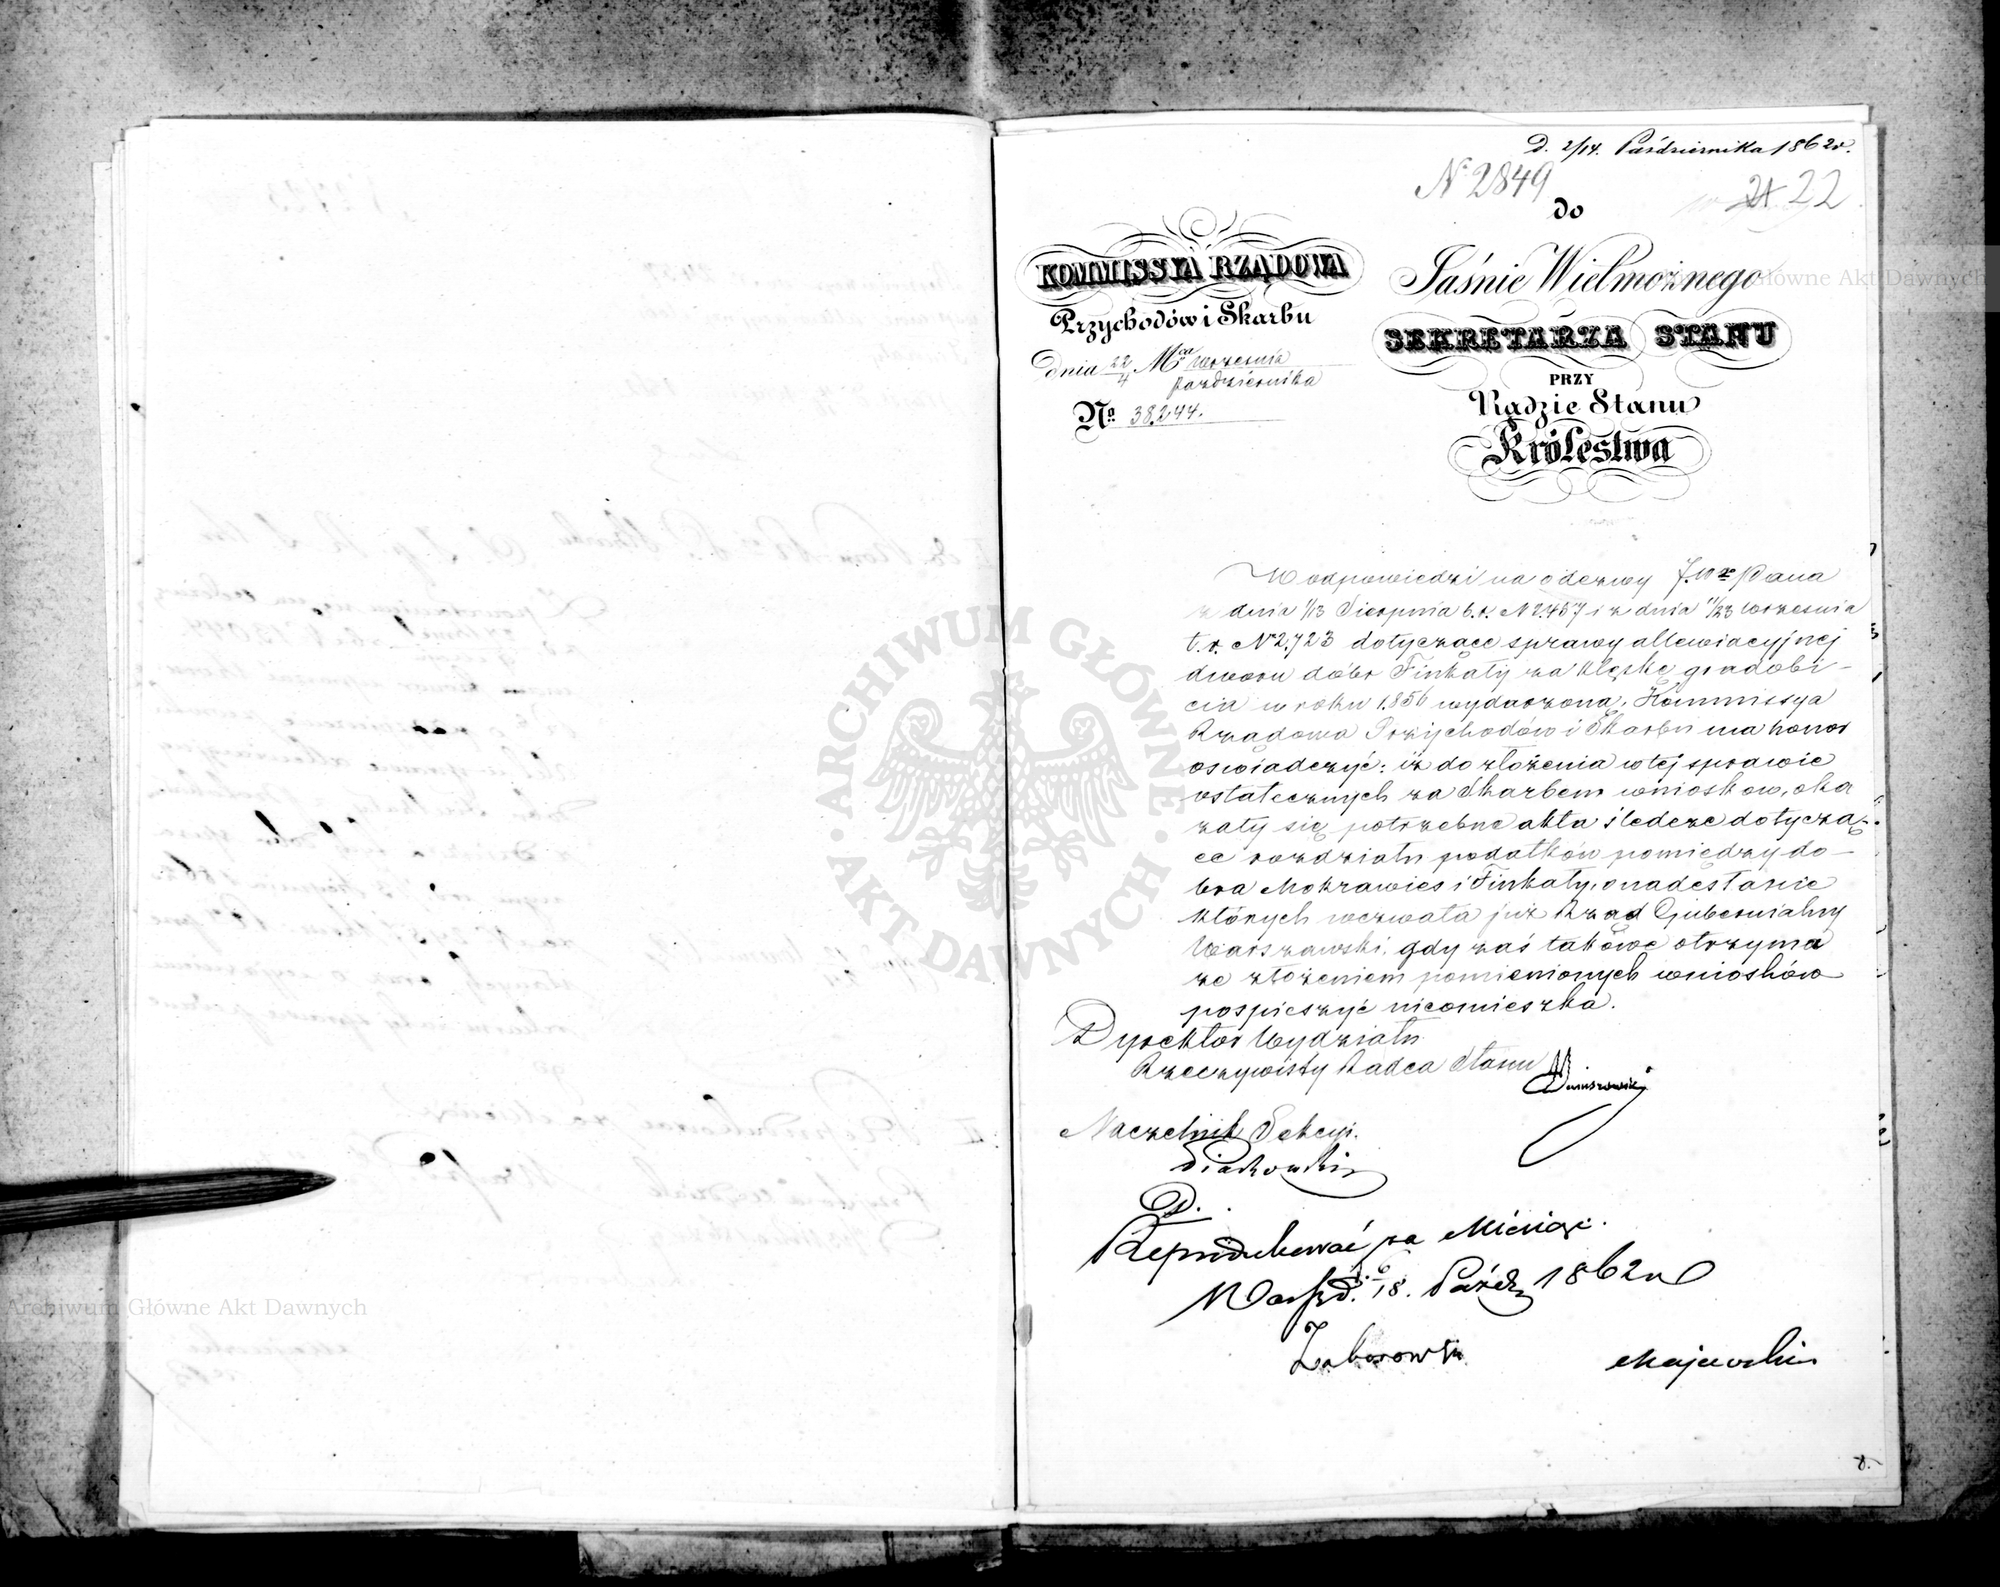 D. 2/14. Października 1862 r.
N 2849
22
do
KOMMISSYA RZĄDOWA
Przychodów i Skarbu
dnia 22/4 Mca Września
Października
No. 38244.
Jaśnie Wielmożnego
SEKRETARZA STANU
PRZY
Radzie Stanu
Królestwa
W odpowiedzi na odezwy JWgo Pana
z dnia 1/13 Sierpnia b.r. N 2457 i z dnia 11/23 Września
t.r. No 2723 dotyczące sprawy allewiacyjnej
dworu dóbr Finkaty za klęskę gradobi-
cia w roku 1856 wydarzoną, Kommissya
Rządowa Przychodów i Skarbu ma honor
oswiadczyć: iż do złożenia w tej sprawie
ostatecznych za Skarbem wniosków, oka
zały się potrzebne akta śledcze dotyczą-
ce rozdziału podatków pomiędzy do-
bra Mokrawieś i Finkaty, o nadesłanie
których wezwała już Rząd Gubernialny
Warszawski, gdy zaś takowe otrzyma
ze złożeniem pomienionych wniosków
pospieszyć nieomieszka.
Dyrektor Wydziału
Rzeczywisty Radca Stanu
Naczelnik Sekcyi
Piotrowski
D.
Reprodukować za Miesiąc.
Warsz. d. 6/18. Paźdz 1862 r
Zaborowski
Majewski
8.
ARCHIWUM GŁÓWNE AKT DAWNYCH
Archiwum Główne Akt Dawnych
Główne Akt Dawnych